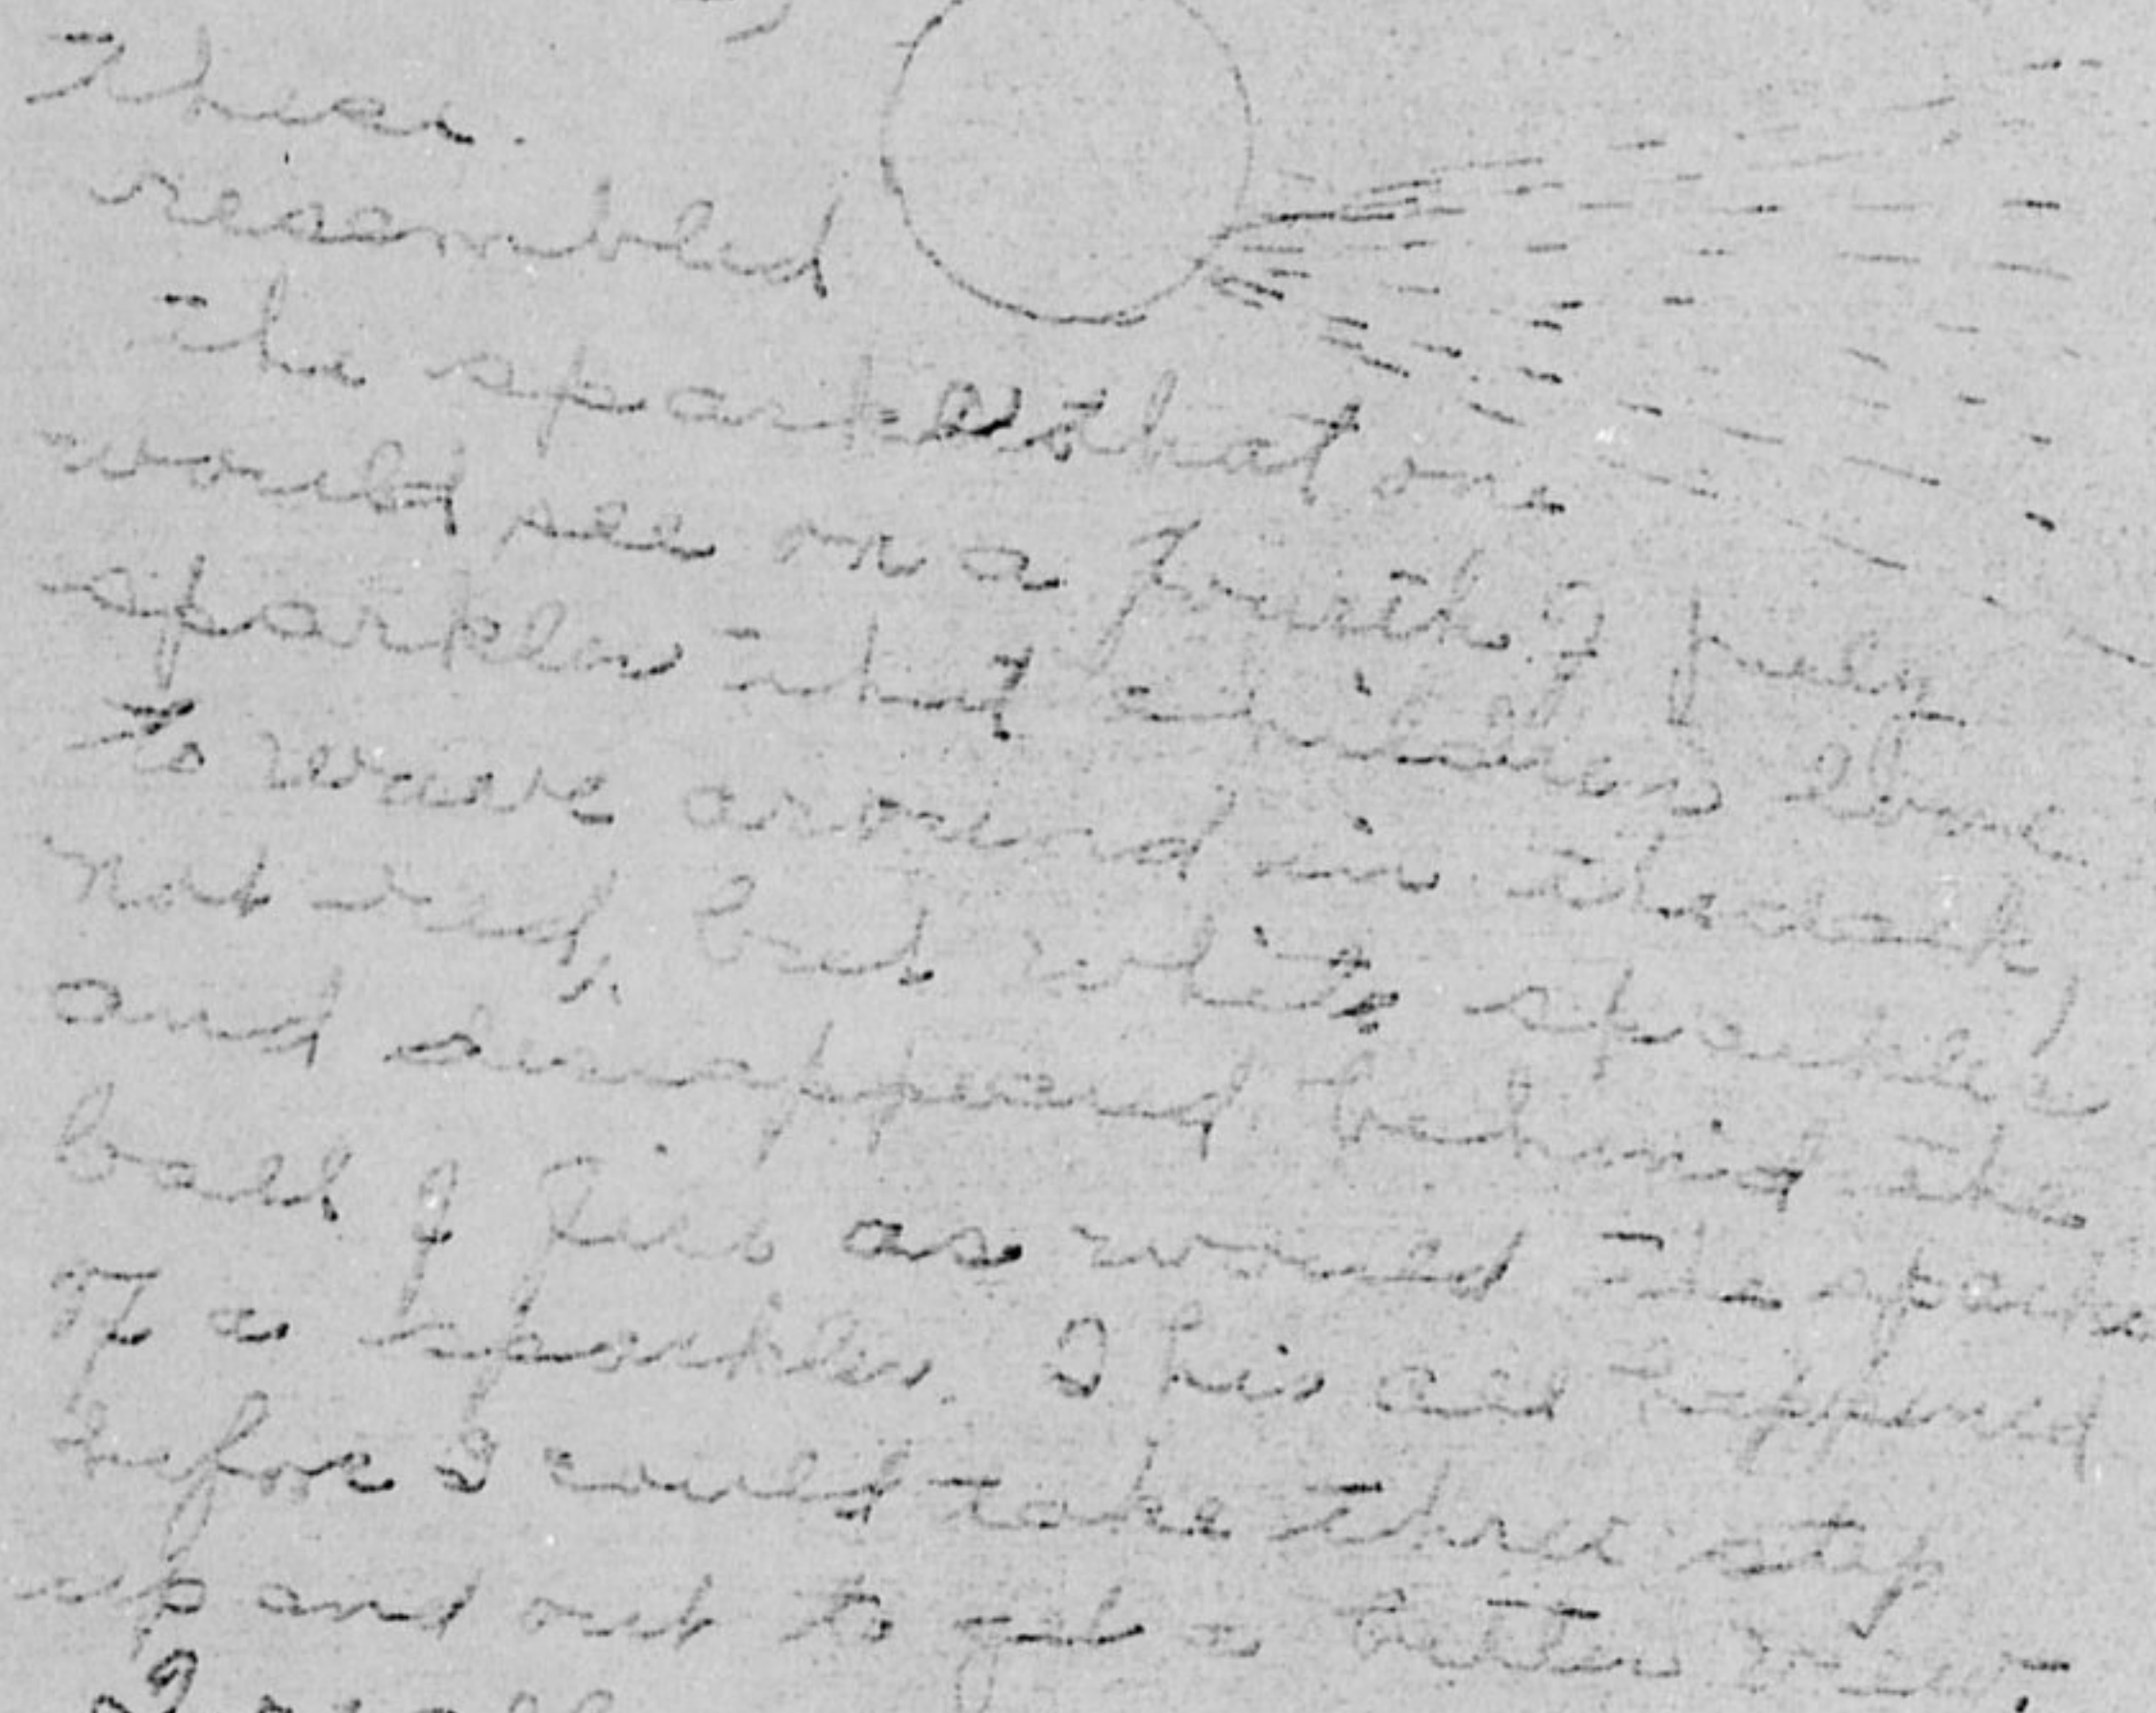 These
resembled
the sparkles that one
would see on a fourth of July
sparkler that children love
to wave around in the dark)
Not red, but white sparkles
and disappeared behind the
ball of fire as would the sparks
of a sparkler. This all happened
before I could take three step
up and out to get a better view.